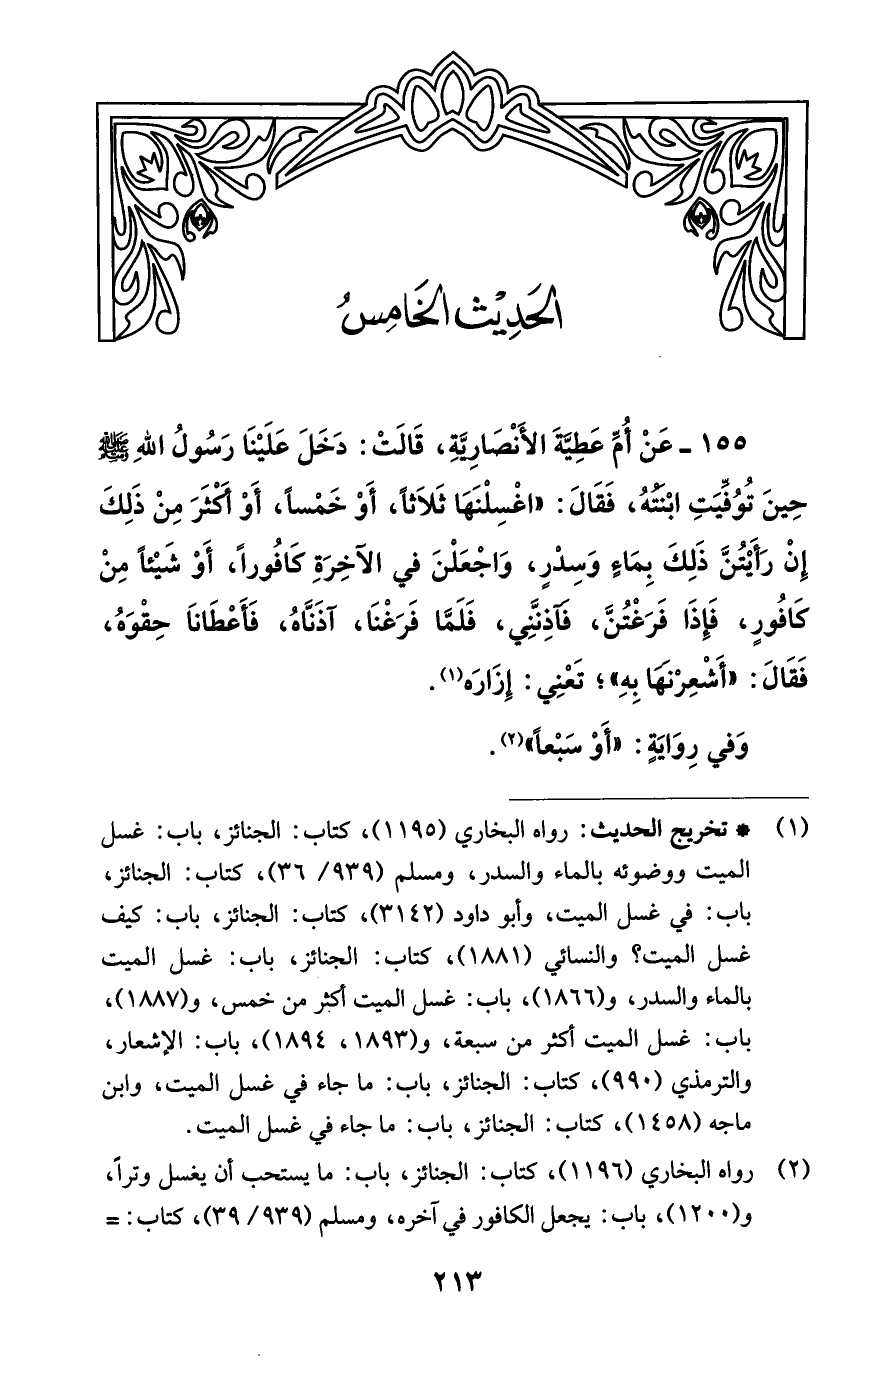 الحَدِيْث الخَامِسُ
١٥٥ - عَنْ أُمِّ عَطِيَّةَ الأَنْصَارِيَّةِ، قَالَتْ: دَخَلَ عَلَيْنَا رَسُولُ اللهِ ﷺ
حِينَ تُوُفِّيَتِ ابْنَتُهُ، فَقَالَ: «اغْسِلْنَهَا ثَلَاثاً، أَوْ خَمْساً، أَوْ أَكْثَرَ مِنْ ذَلِكَ
إِنْ رَأَيْتُنَّ ذَلِكَ بِمَاءٍ وَسِدْرٍ، وَاجْعَلْنَ في الآخِرَةِ كَافُوراً، أَوْ شَيْئاً مِنْ
كَافُورٍ، فَإِذَا فَرَغْتُنَّ، فَآذِنَّنِي، فَلَمَّا فَرَغْنَا، آذَنَّاهُ، فَأَعْطَانَا حِقْوَهُ،
فَقَالَ: «أَشْعِرْنَهَا بِهِ»؛ تَعْنِي: إِزَارَه(١).
وَفي رِوَايَةٍ: «أَوْ سَبْعاً»(٢).
(١) * تخريج الحديث: رواه البخاري (١١٩٥)، كتاب: الجنائز، باب: غسل
الميت ووضوئه بالماء والسدر، ومسلم (٩٣٩/ ٣٦)، كتاب: الجنائز،
باب: في غسل الميت، وأبو داود (٣١٤٢)، كتاب: الجنائز، باب: كيف
غسل الميت؟ والنسائي (١٨٨١)، كتاب: الجنائز، باب: غسل الميت
بالماء والسدر، و(١٨٦٦)، باب: غسل الميت أكثر من خمس، و(١٨٨٧)،
باب: غسل الميت أكثر من سبعة، و(١٨٩٣، ١٨٩٤)، باب: الإشعار،
والترمذي (٩٩٠)، كتاب: الجنائز، باب: ما جاء في غسل الميت، وابن
ماجه (١٤٥٨)، كتاب: الجنائز، باب: ما جاء في غسل الميت.
(٢) رواه البخاري (١١٩٦)، كتاب: الجنائز، باب: ما يستحب أن يغسل وتراً،
و(١٢٠٠)، باب: يجعل الكافور في آخره، ومسلم (٩٣٩/ ٣٩)، كتاب: =
٢١٣